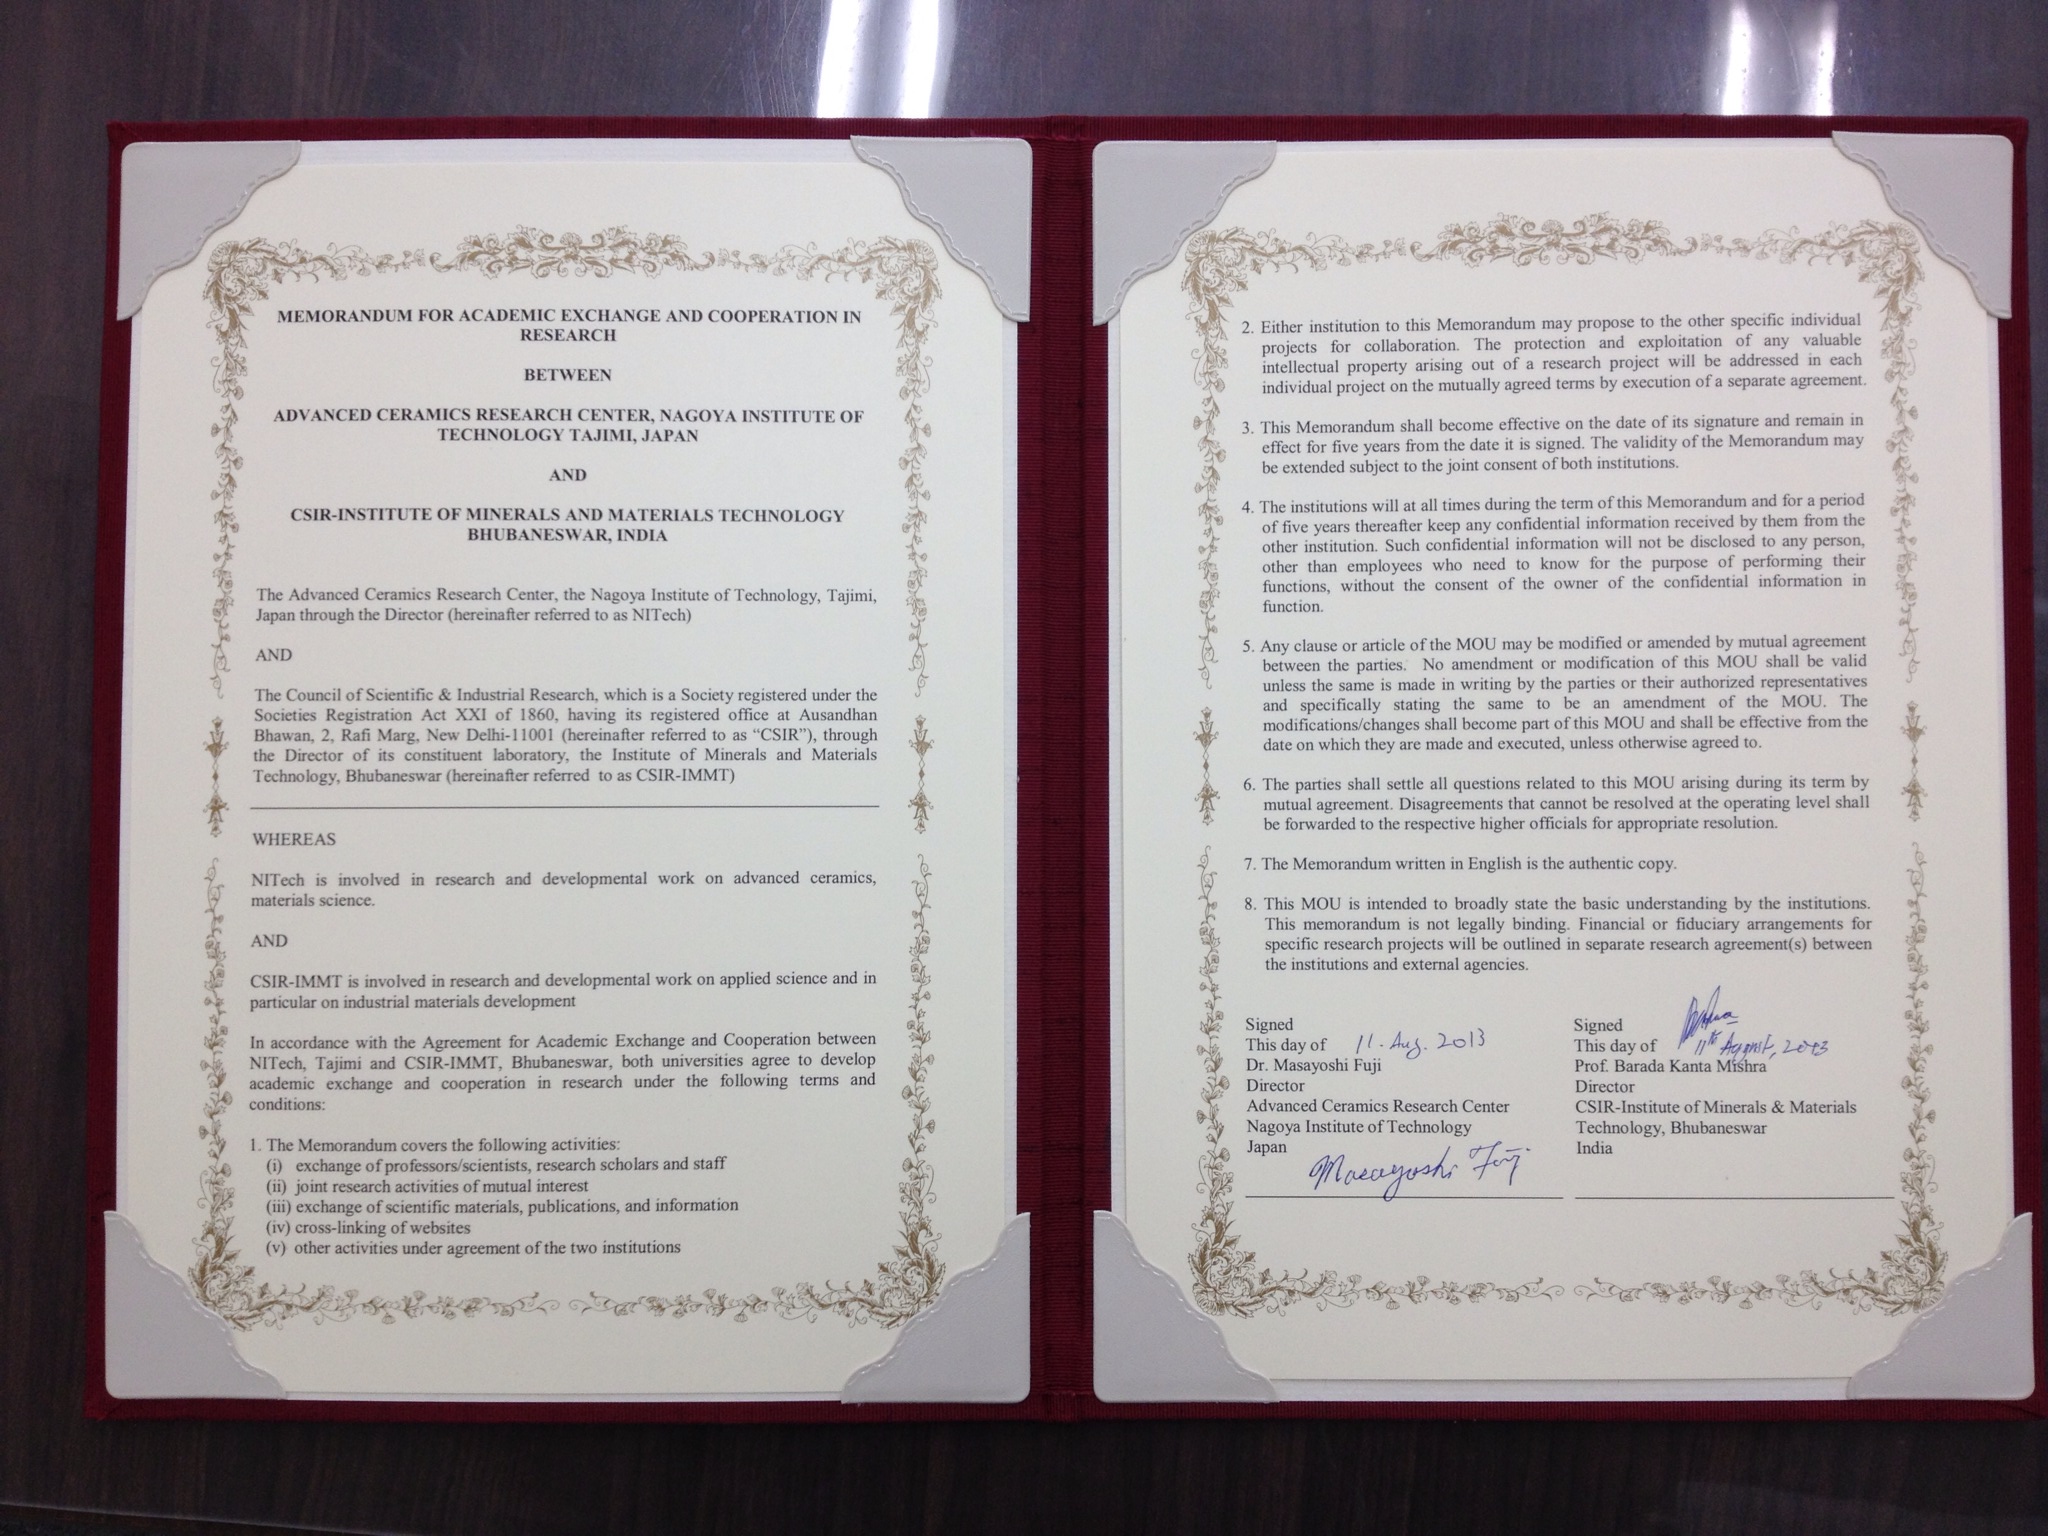 MEMORANDUM FOR ACADEMIC EXCHANGE AND COOPERATION IN
RESEARCH
BETWEEN
ADVANCED CERAMICS RESEARCH CENTER, NAGOYA INSTITUTE OF
TECHNOLOGY TAJIMI, JAPAN
AND
CSIR-INSTITUTE OF MINERALS AND MATERIALS TECHNOLOGY
BHUBANESWAR, INDIA
The Advanced Ceramics Research Center, the Nagoya Institute of Technology, Tajimi,
Japan through the Director (hereinafter referred to as NITech)
AND
The Council of Scientific & Industrial Research, which is a Society registered under the
Societies Registration Act XXI of 1860, having its registered office at Ausandhan
Bhawan, 2, Rafi Marg, New Delhi-11001 (hereinafter referred to as “CSIR”), through
the Director of its constituent laboratory, the Institute of Minerals and Materials
Technology, Bhubaneswar (hereinafter referred to as CSIR-IMMT)
WHEREAS
NITech is involved in research and developmental work on advanced ceramics,
materials science.
AND
CSIR-IMMT is involved in research and developmental work on applied science and in
particular on industrial materials development
In accordance with the Agreement for Academic Exchange and Cooperation between
NITech, Tajimi and CSIR-IMMT, Bhubaneswar, both universities agree to develop
academic exchange and cooperation in research under the following terms and
conditions:
1. The Memorandum covers the following activities:
(i) exchange of professors/scientists, research scholars and staff
(ii) joint research activities of mutual interest
(iii) exchange of scientific materials, publications, and information
(iv) cross-linking of websites
(v) other activities under agreement of the two institutions
2. Either institution to this Memorandum may propose to the other specific individual
projects for collaboration. The protection and exploitation of any valuable
intellectual property arising out of a research project will be addressed in each
individual project on the mutually agreed terms by execution of a separate agreement.
3. This Memorandum shall become effective on the date of its signature and remain in
effect for five years from the date it is signed. The validity of the Memorandum may
be extended subject to the joint consent of both institutions.
4. The institutions will at all times during the term of this Memorandum and for a period
of five years thereafter keep any confidential information received by them from the
other institution. Such confidential information will not be disclosed to any person,
other than employees who need to know for the purpose of performing their
functions, without the consent of the owner of the confidential information in
function.
5. Any clause or article of the MOU may be modified or amended by mutual agreement
between the parties. No amendment or modification of this MOU shall be valid
unless the same is made in writing by the parties or their authorized representatives
and specifically stating the same to be an amendment of the MOU. The
modifications/changes shall become part of this MOU and shall be effective from the
date on which they are made and executed, unless otherwise agreed to.
6. The parties shall settle all questions related to this MOU arising during its term by
mutual agreement. Disagreements that cannot be resolved at the operating level shall
be forwarded to the respective higher officials for appropriate resolution.
7. The Memorandum written in English is the authentic copy.
8. This MOU is intended to broadly state the basic understanding by the institutions.
This memorandum is not legally binding. Financial or fiduciary arrangements for
specific research projects will be outlined in separate research agreement(s) between
the institutions and external agencies.
Signed
This day of 11. Aug. 2013
Dr. Masayoshi Fuji
Director
Advanced Ceramics Research Center
Nagoya Institute of Technology
Japan
Masayoshi Fuji
Signed
This day of 11th August, 2013
Prof. Barada Kanta Mishra
Director
CSIR-Institute of Minerals & Materials
Technology, Bhubaneswar
India